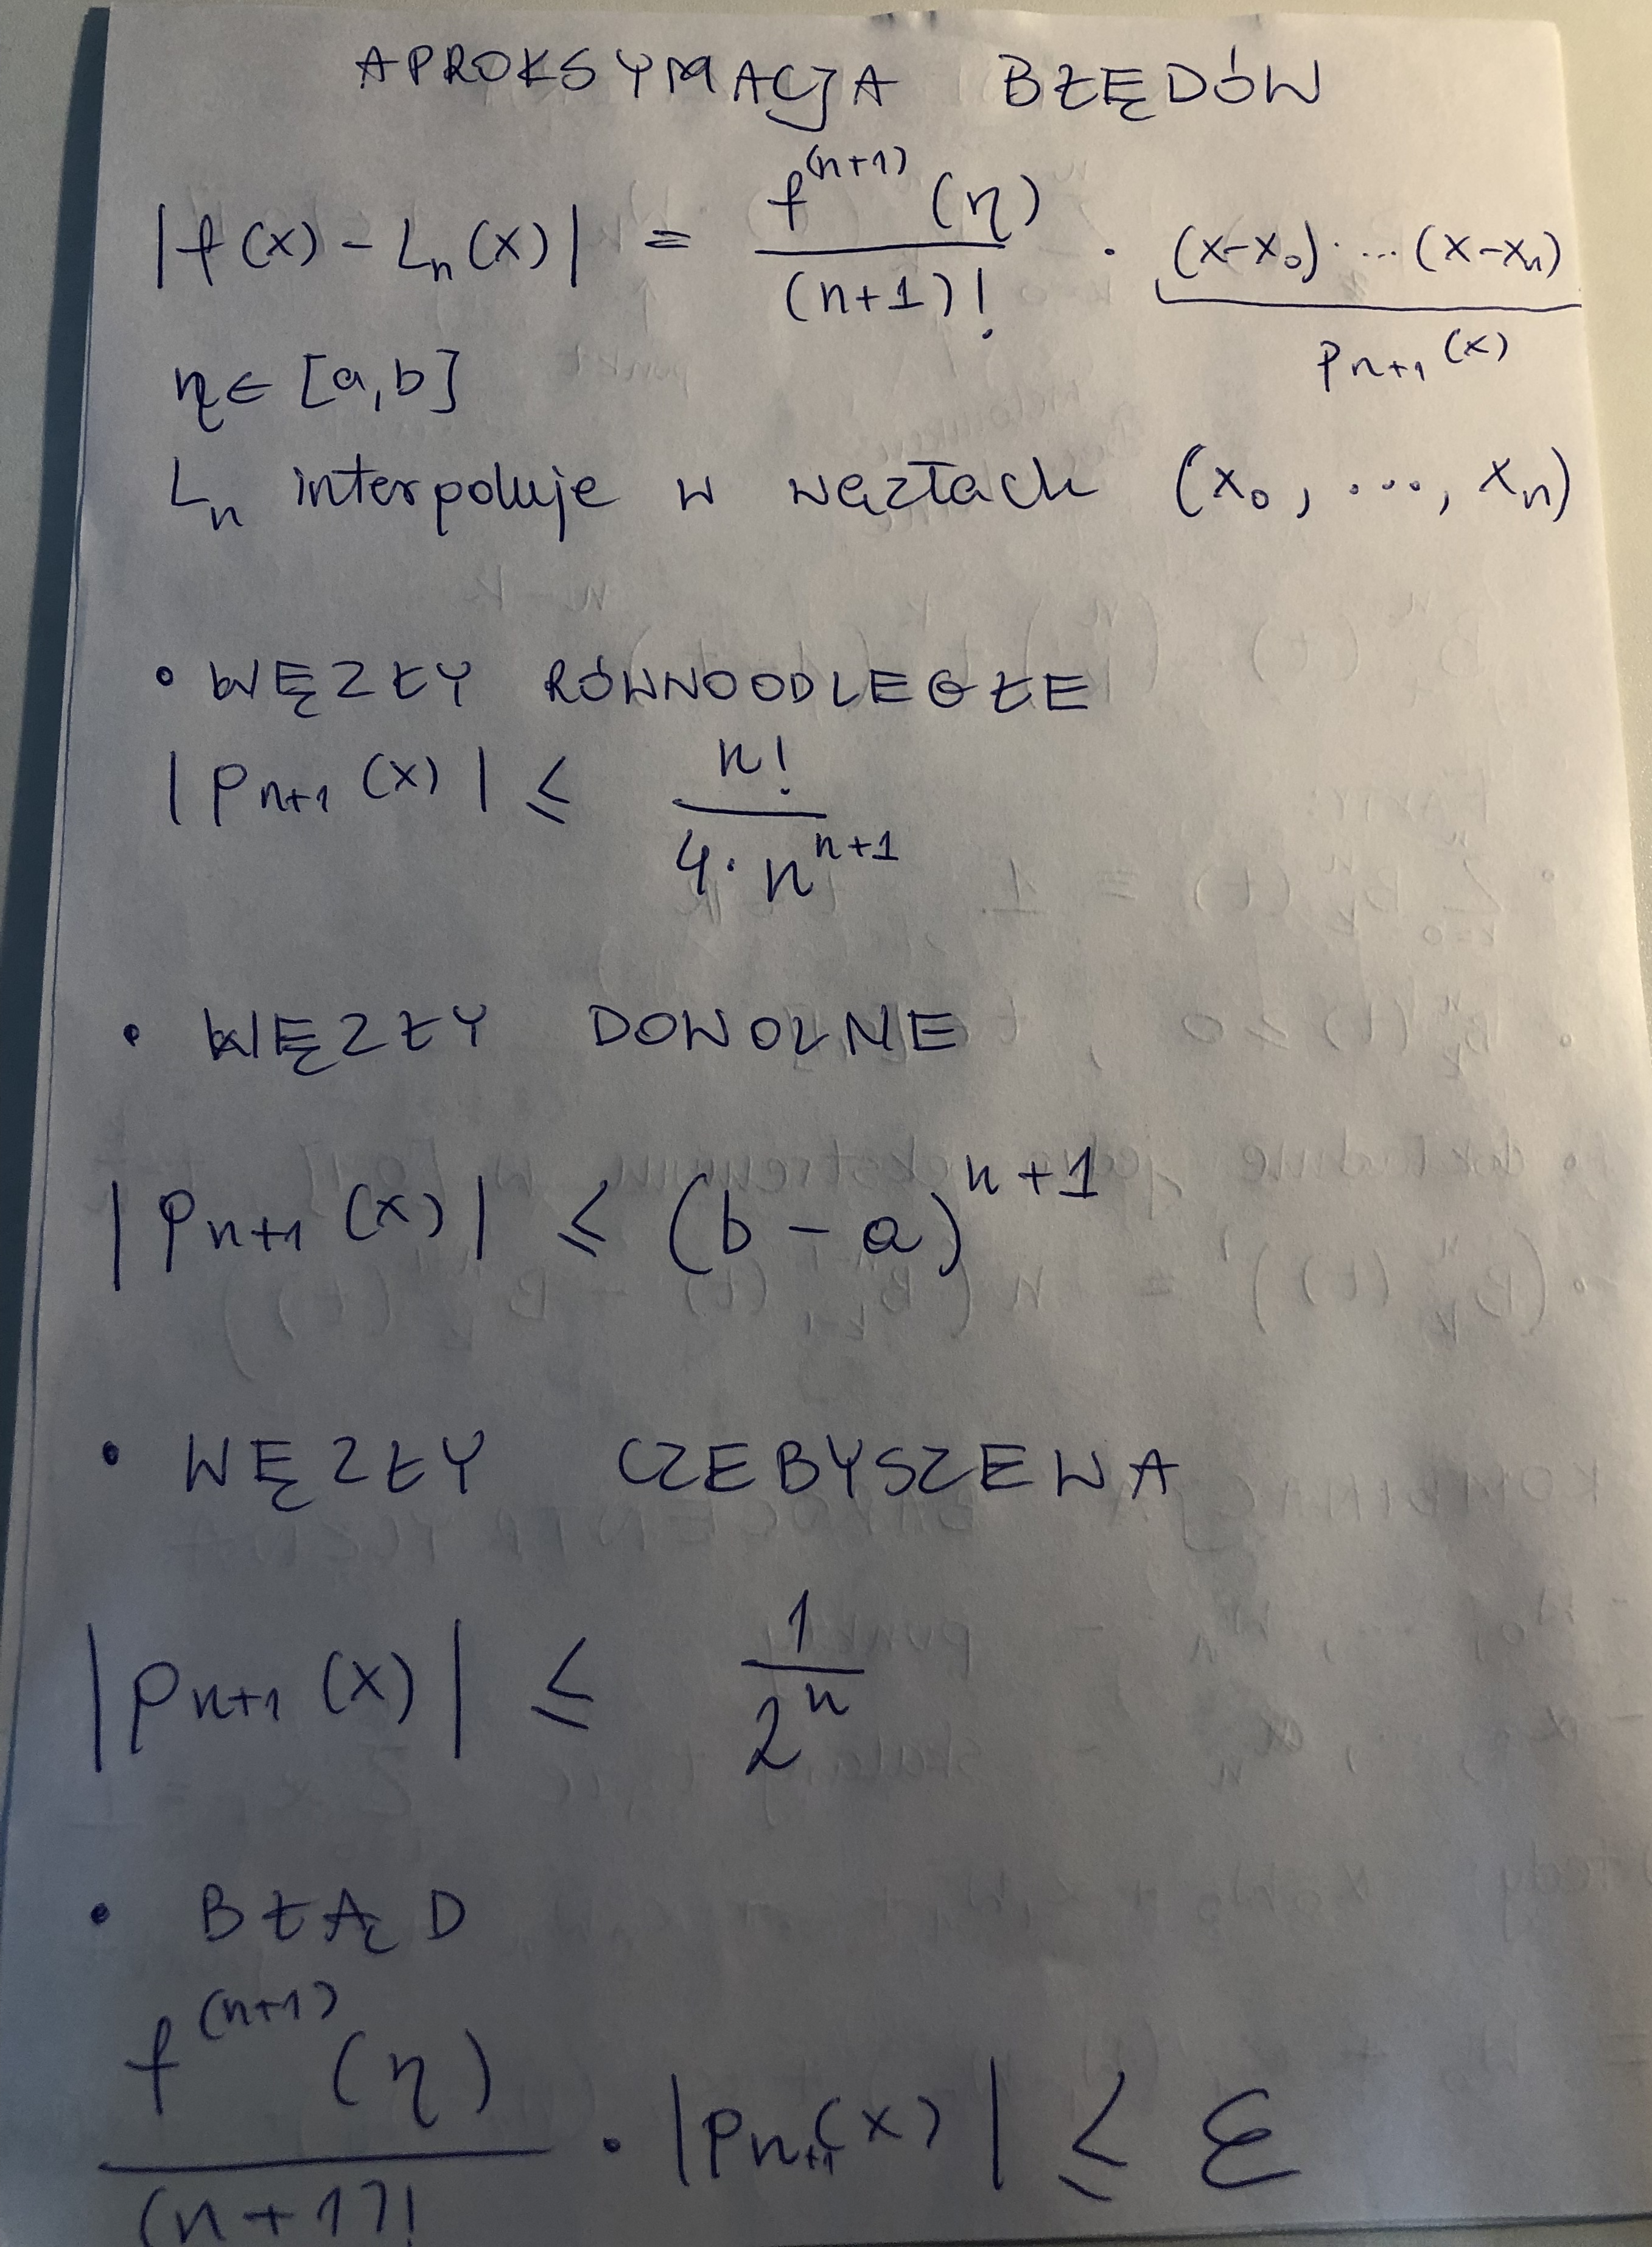 APROKSYMACJA BŁĘDÓW
|f(x) - Lₙ(x)| = f⁽ⁿ⁺¹⁾(η) / (n+1)! · (x-x₀)·...(x-xₙ)
pₙ₊₁(x)
η ∈ [a,b]
Lₙ interpoluje w węzłach (x₀, ..., xₙ)
• WĘZŁY RÓWNOODLEGŁE
|pₙ₊₁(x)| ≤ n! / 4·nⁿ⁺¹
• WĘZŁY DOWOLNE
|pₙ₊₁(x)| ≤ (b-a)ⁿ⁺¹
• WĘZŁY CZEBYSZEWA
|pₙ₊₁(x)| ≤ 1 / 2ⁿ
• BŁĄD
f⁽ⁿ⁺¹⁾(η) / (n+1)! · |pₙ₊₁(x)| ≤ ε